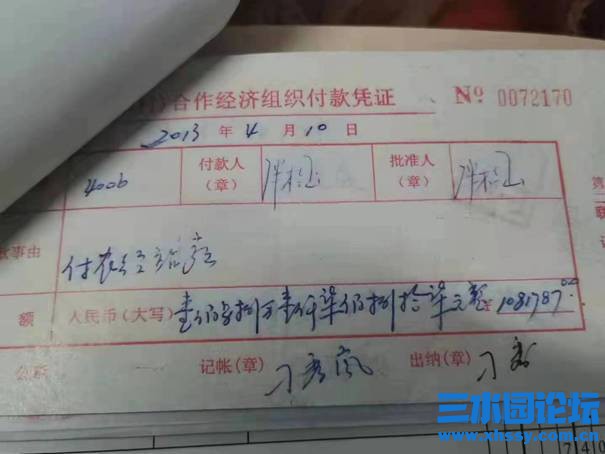 合作经济组织付款凭证 Nº 0072170
2013 年 4 月 10 日
4006 付款人(章) 批准人(章) 第
事由 付农经站
额 人民币(大写) 壹佰零捌万壹仟柒佰捌拾柒元整 1081787.00
记帐(章) 刁秀岚 出纳(章) 刁
三水园论坛
www.xhssy.com.cn
740